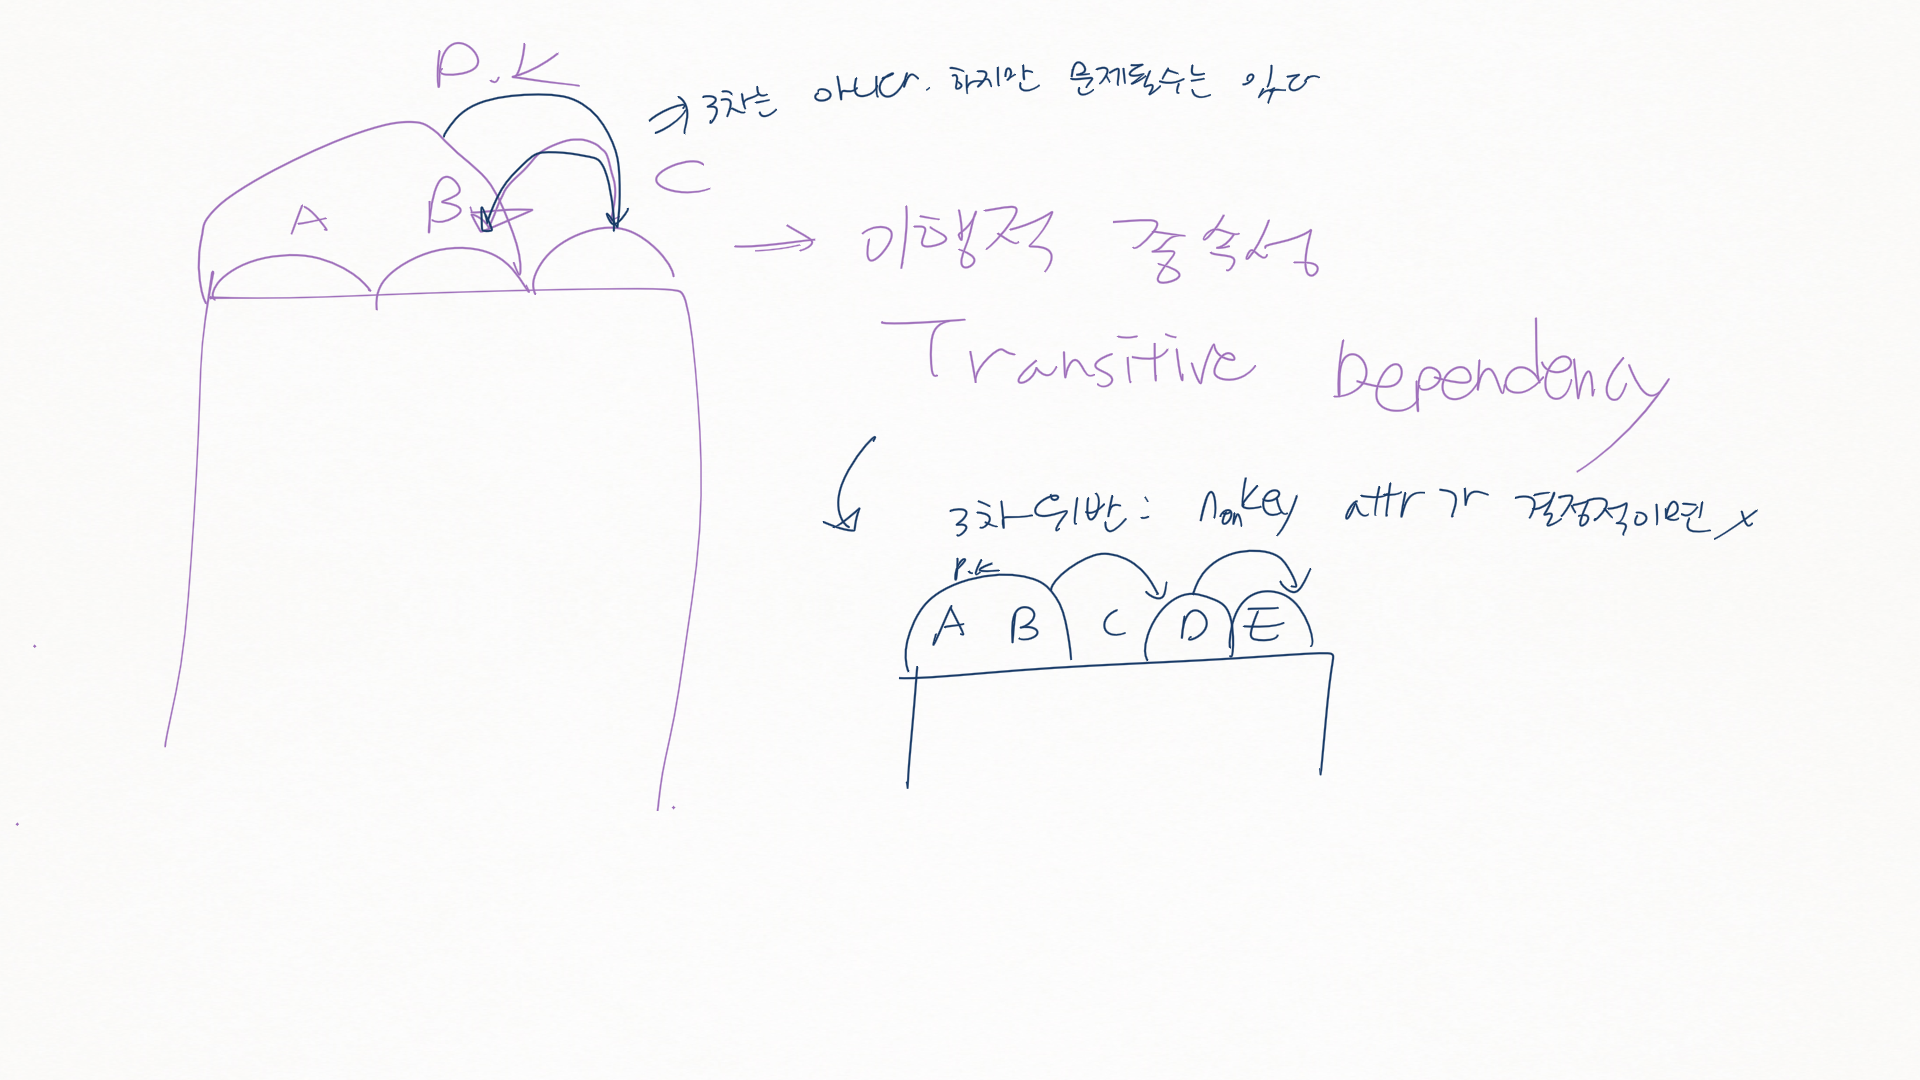 P.K
⇒ 3차는 아니다. 하지만 문제될수는 있다
A B C
→ 이행적 종속성
Transitive Dependency
3차위반: nonkey attr가 결정적이면 x
P.K
A B C D E